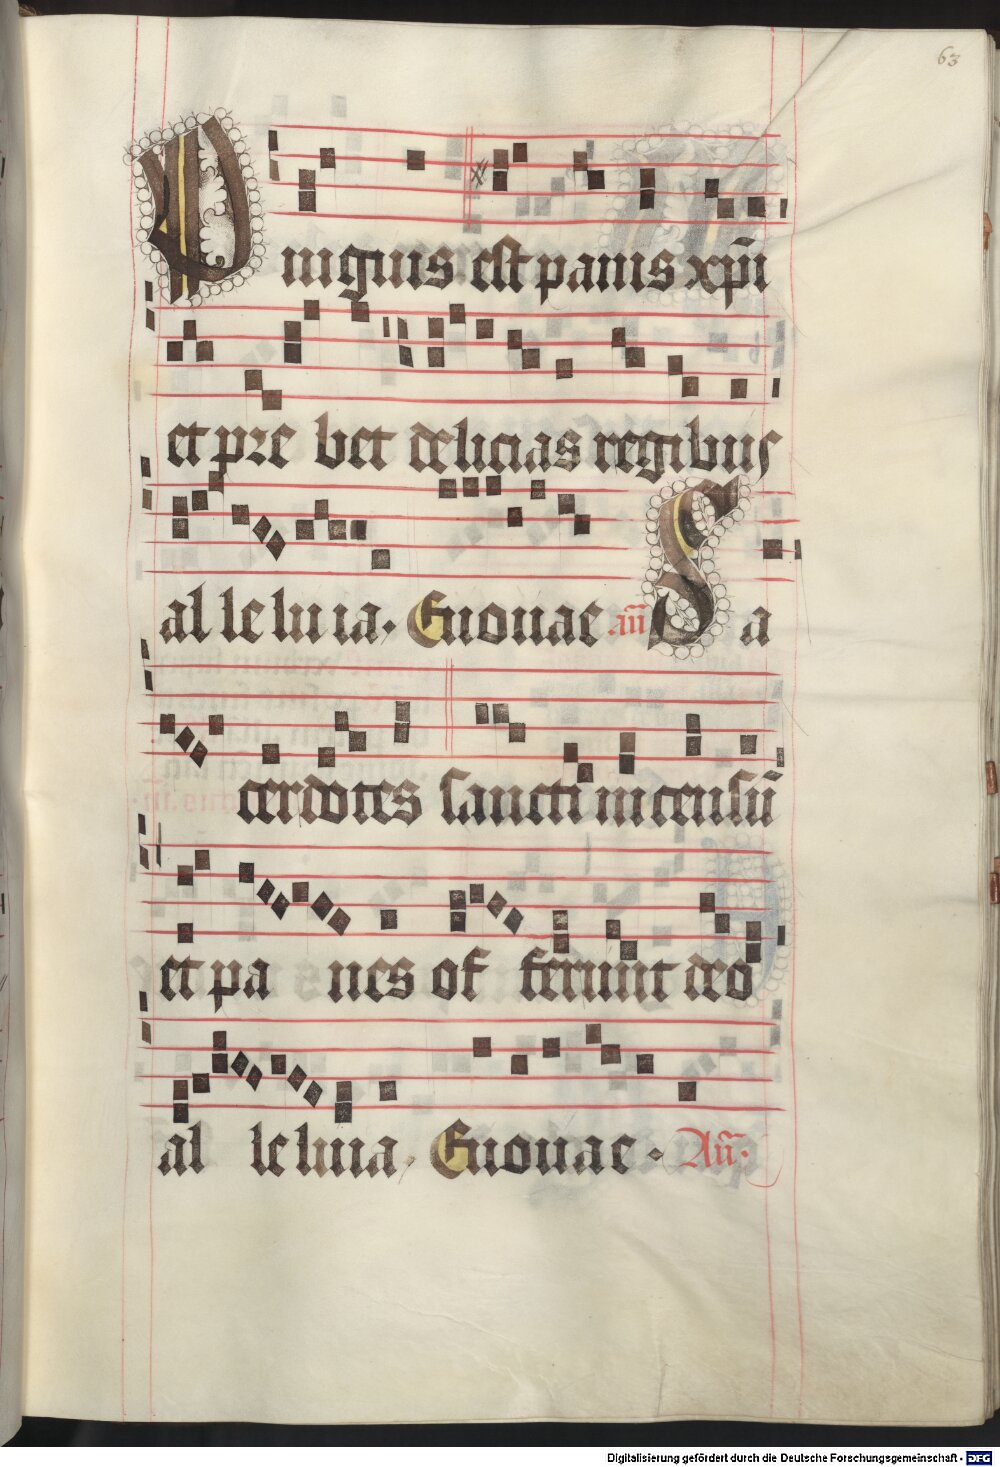 63
Pinguis est panis xp̄i
et pre bet delicias regibus
al le lu ia. Euouae an̄ Sa
cerdotes sancti incensū
et pa nes of ferunt deo
al le luia. Euouae. An̄.
Digitalisierung gefördert durch die Deutsche Forschungsgemeinschaft - DFG